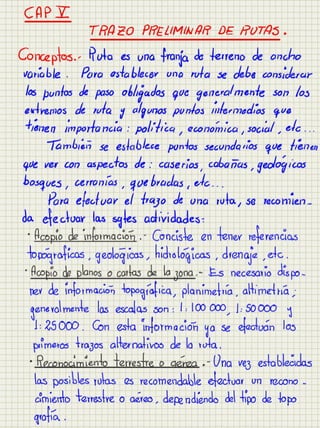 CAP V
TRAZO PRELIMINAR DE RUTAS.
Conceptos.- Ruta es una franja de terreno de ancho
variable. Para establecer una ruta se debe considerar
los puntos de paso obligados que generalmente son los
extremos de ruta y algunos puntos intermedios que
tienen importancia: politica, economica, social, etc...
También se establece puntos secundarios que tienen
que ver con aspectos de: caserios, cabañas, geológicos
bosques, cerranías, quebradas, etc...
Para efectuar el trazo de una ruta, se recomien-
da efectuar las sgtes actividades:
· Acopio de información.- Conciste en tener referencias
topográficas, geológicas, hidrológicas, drenaje, etc.
· Acopio de planos o cartas de la zona.- Es necesario dispo-
ner de información topográfica, planimetría, altimetría;
generalmente las escalas son: 1:100 000, 1:50 000 y
1:25 000. Con esta información ya se efectúan los
primeros trazos alternativos de la ruta.
· Reconocimiento terrestre o aéreo.- Una vez establecidas
las posibles rutas es recomendable efectuar un recono-
cimiento terrestre o aéreo, dependiendo del tipo de topo
grafía.